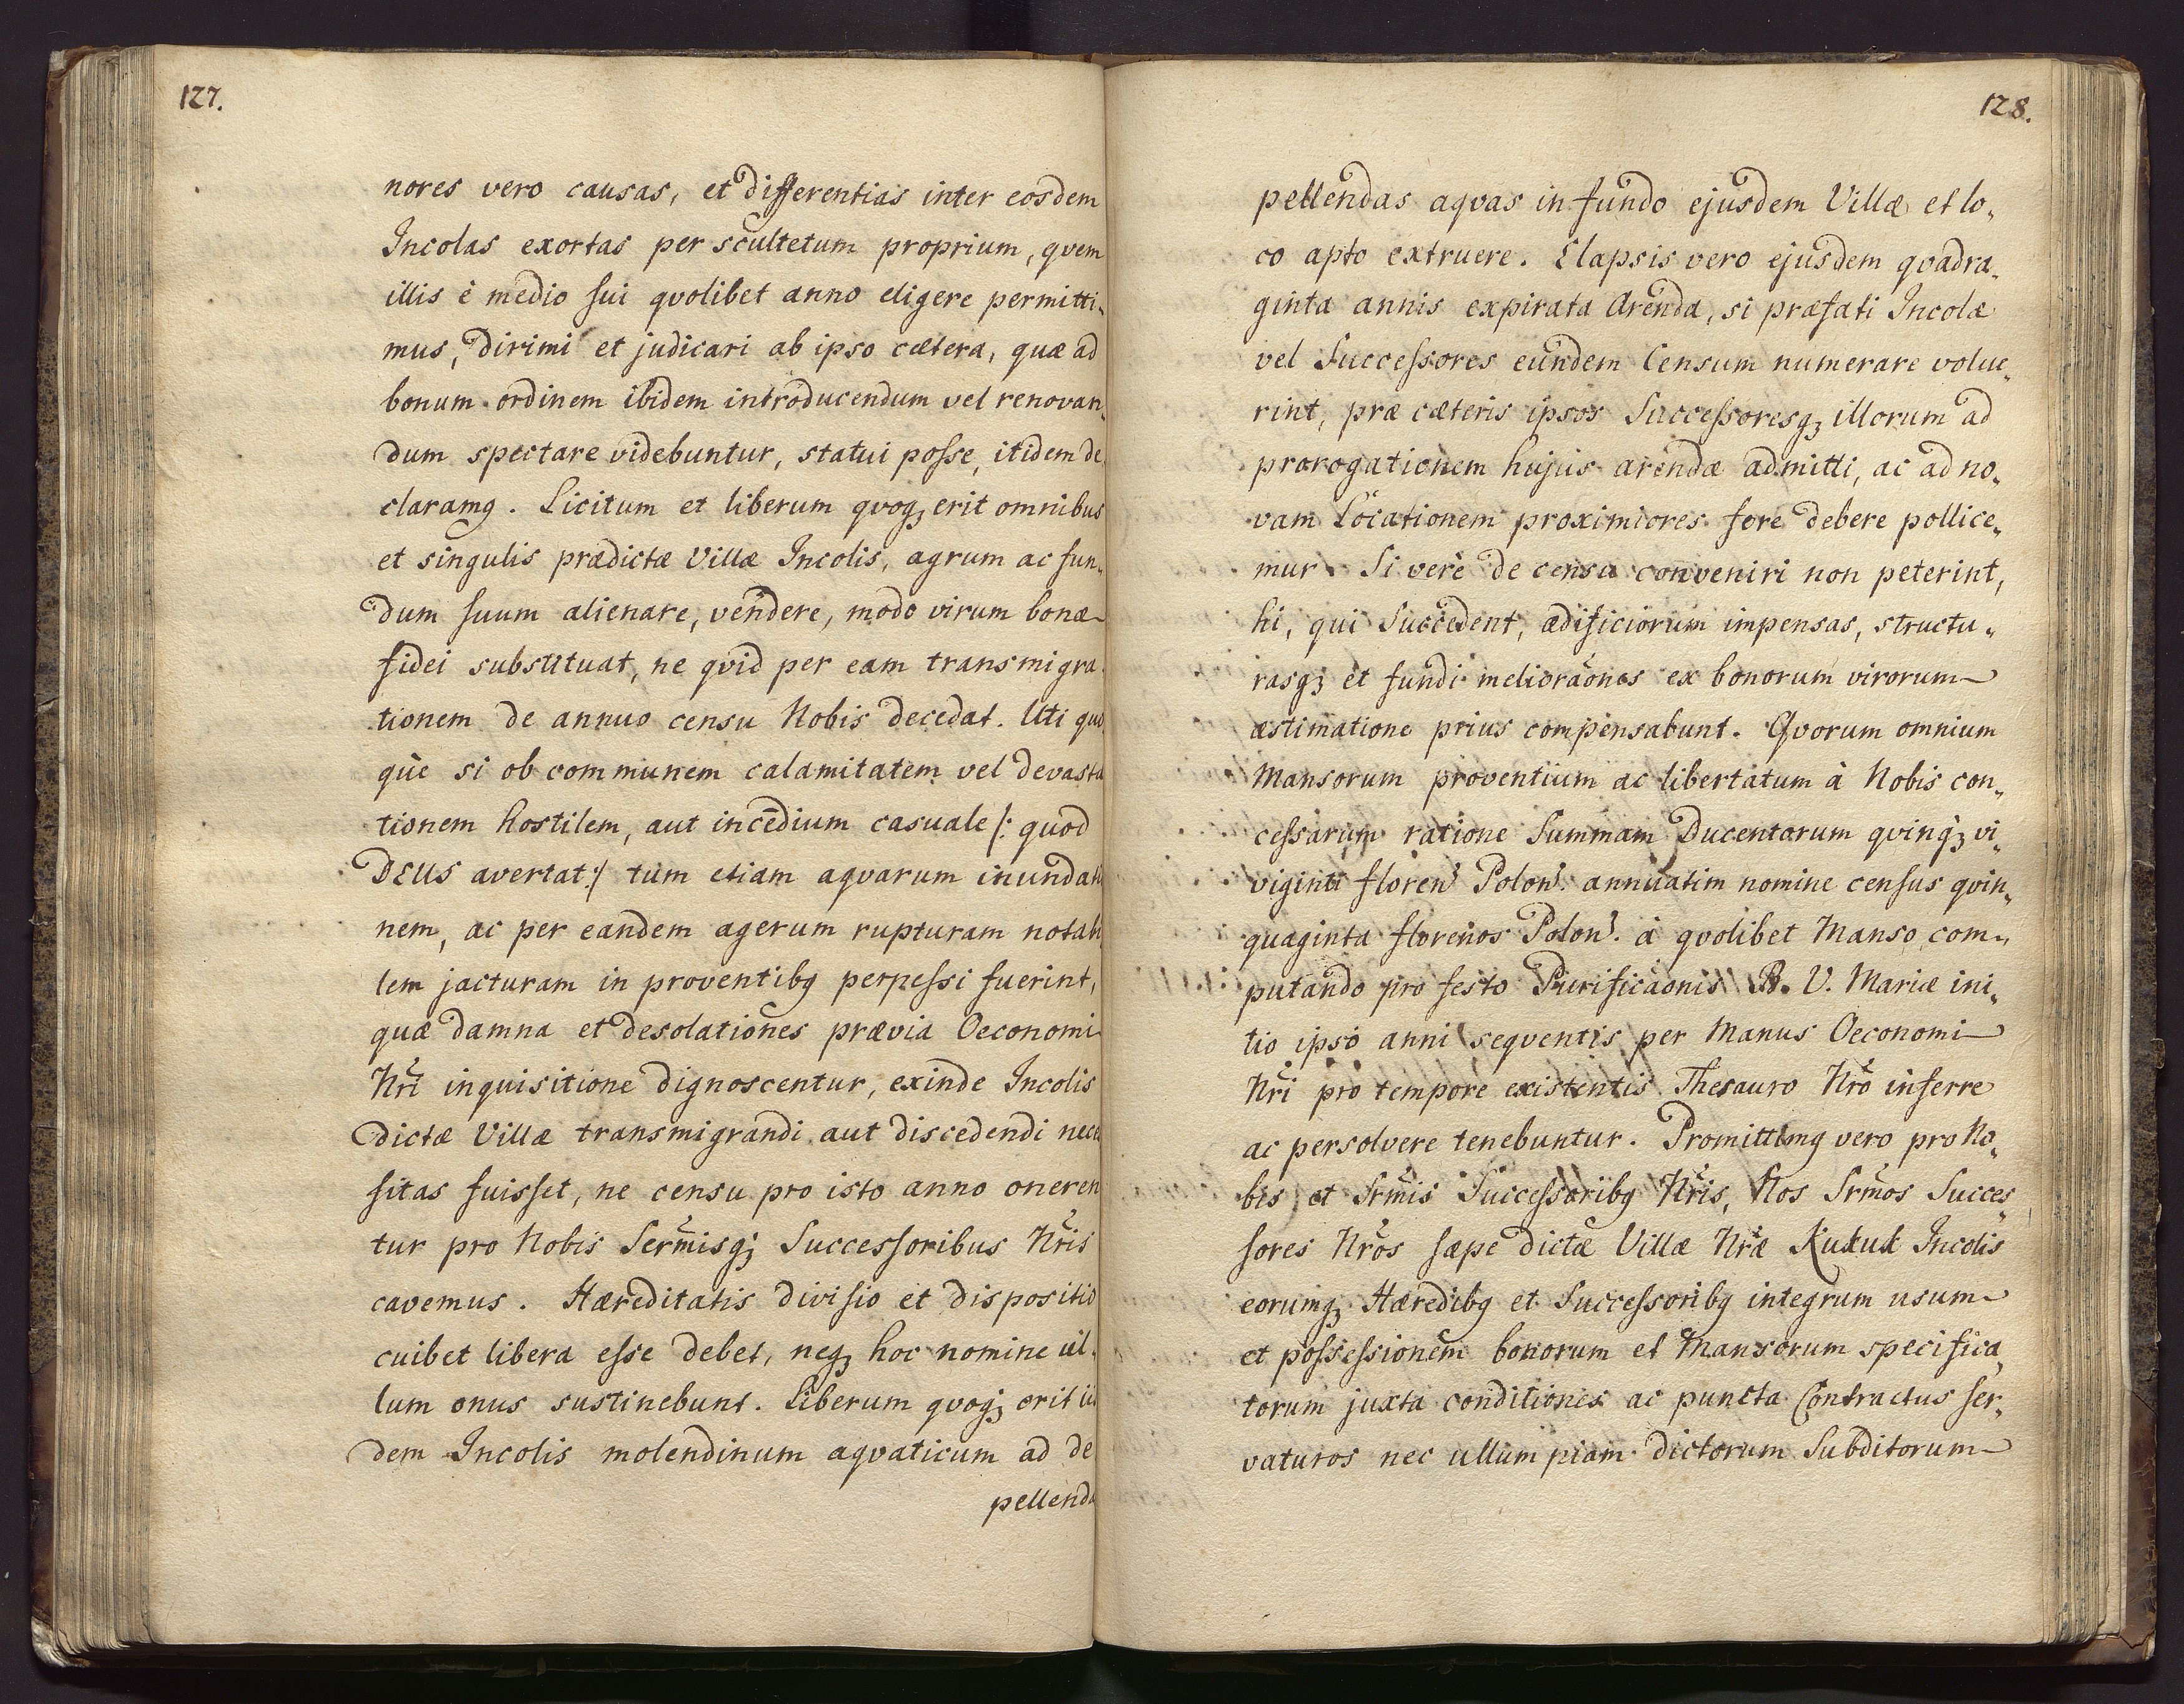 127.
nores vero causas, et differentias inter eosdem
Incolas exortas per scultetum proprium, qvem
illis è medio sui qvolibet anno eligere permitti„
mus, dirimi et judicari ab ipso cætera, quæ ad
bonum ordinem ibidem introducendum vel renovan„
dum spectare videbuntur, statui posse, itidem de„
claramꝰ. Licitum et liberum qvoqꝫ erit omnibus
et singulis prædictæ Villæ Incolis, agrum ac fun„
dum suum alienare, vendere, modo virum bonæ
fidei substituat, ne qvid per eam transmigra„
tionem de annuo censu Nobis decedat. Uti quo„
qùe si ob communem calamitatem vel devasta
tionem hostilem, aut incēdium casuale /: quod
DEUS avertat :/ tum etiam aqvarum inundatio
nem, ac per eandem agerum rupturam notabi
lem jacturam in proventibꝰ perpessi fuerint,
quæ damna et desolationes prævia Oeconomi
Nr̃i inquisitione dignoscentur, exinde Incolis
dictæ Villæ transmigrandi aut discedendi neces
sitas fuisset, ne censu pro isto anno oneren
tur pro Nobis Serm̃isqꝫ Successoribus Nr̃is
cavemus. Hæreditatis divisio et dispositio
cuibet libera esse debet, neqꝫ hoc nomine ul„
lum onus sustinebunt. Liberum qvoqꝫ erit iis
dem Incolis molendinum aqvaticum ad de
pellenda
128.
pellendas aqvas in fundo ejusdem Villæ et lo„
co apto extruere. Elapsis vero ejusdem qvadra„
ginta annis expirata Arenda, si præfati Incolæ
vel Successores eundem Censum numerare volue„
rint, præ cæteris ipsos Successoresqꝫ illorum ad
prorogationem hujus arendæ admitti, ac ad no„
vam Locationem proximiores fore debere pollice„
mur. Si verè de censu conveniri non peterint,
hi, qui Succedent, ædificiorum impensas, structu„
rasqꝫ et fundi meliorãones ex bonorum virorum
æstimatione prius compensabunt. Qvorum omnium
Mansorum proventuum ac libertatum à Nobis con„
cessarum ratione Summam Ducentorum qvinqꝫ vi„
viginti floren̉ Polon̉. annuatim nomine census qvin„
quaginta florenos Polon̉. à qvolibet Manso com„
putando pro festo Purificãonis B. V. Mariæ ini„
tio ipso anni seqventis per Manus Oeconomi
Nr̃i pro tempore existentis Thesauro Nr̃o inferre
ac persolvere tenebuntur. Promittimꝰ vero pro No„
bis et Srm̃is Successoribꝰ Nr̃is, Nos Srm̃os Succes„
sores Nr̃os sæpe dictæ Villæ Nr̃æ Kukuk Incolis
eorumqꝫ Hæredibꝰ et Successoribꝰ integrum usum
et possessionem bonorum et Mansorum specifica„
torum juxta conditiones ac puncta Contractus ser„
vaturos nec ullum piam dictorum Subditorum